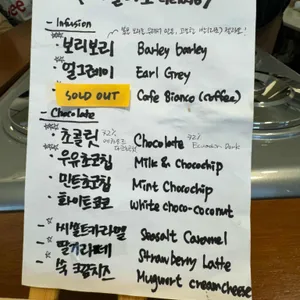 - Infusion
보리보리 Barley barley
얼그레이 Earl Grey
SOLD OUT Cafe Bianco (coffee)
- Chocolate
초콜릿 Chocolate
우유초코칩 Milk & Chocochip
민트초코칩 Mint Chocochip
화이트코코 White choco-coconut
씨쏠트카라멜 Seasalt Caramel
딸기라떼 Strawberry Latte
쑥 크림치즈 Mugwurt creamcheese